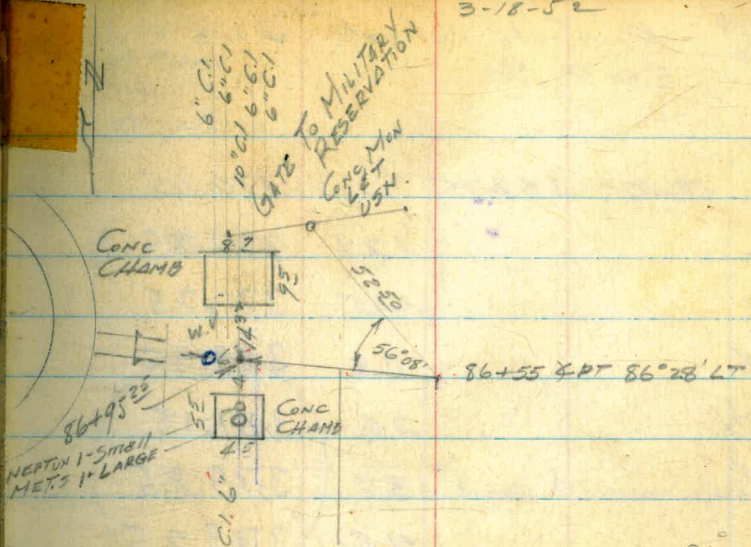 3-18-52
N
6" C.I.
6" C.I
10" C.I
6" C.I
6" C.I
GATE TO MILITARY
RESERVATION
CONC MON
L&T
USN
CONC
CHAMB
8
95
52 50
14 3
W.V.
56°08'
86+55 ∡ PT 86°28' LT
86+95 25
4
55
CONC
CHAMB
45
NEPTUN 1-SMALL
MET.S 1-LARGE
C.I. 6"